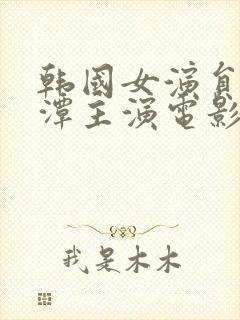 韩國女演員
潭主演電影
我是木木